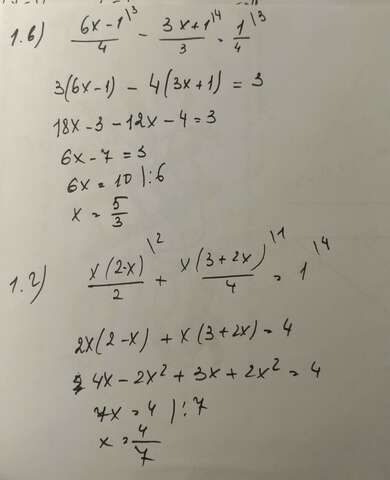 1.б) (6x-1)/4 \3 - (3x+1)/3 \4 = 1/4 \3
3(6x-1) - 4(3x+1) = 3
18x - 3 - 12x - 4 = 3
6x - 7 = 3
6x = 10 |:6
x = 5/3
1.2) x(2-x)/2 \2 + x(3+2x)/4 \1 = 1 \4
2x(2-x) + x(3+2x) = 4
4x - 2x² + 3x + 2x² = 4
7x = 4 |:7
x = 4/7